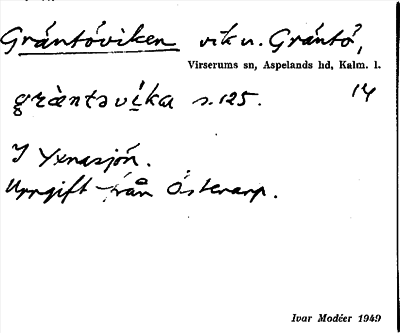 Gräntöviken vik u. Gräntö,
Virserums sn, Aspelands hd, Kalm. l.
gràntəvíka s. 125. 14
I Yxnasjön.
Uppgift från Österarp.
Ivar Modéer 1949